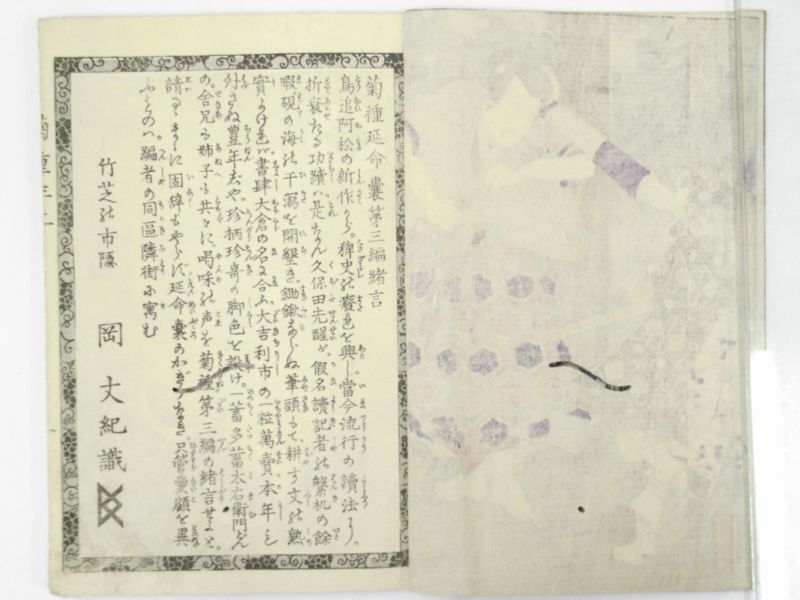 菊種延命嚢第三編緒言
鳥追阿松の新作から。稗史の廢色を興し。當今流行の讀法より
折衰たる功績は。是なん久保田先醒が。假名讀記者の繁机の餘
暇硯の海の干瀉を開墾き。鋤鍬ならぬ筆頭もて耕す文の熟
實よけれバ。書肆大倉の名に合ふ。大吉利市の一粒萬賣本年も
外さぬ豊年志や。珍柄珍奇の脚色を設け。一蓄多蓄太右衛門どん
の。舍兄も姉子も共々に。喝咏の声を菊種第三編の緒言せよと。
請るゝまゝに固辞もやらで。延命嚢の 只管愛顧を異
ふものハ。編者の同區隣街に寓む
竹芝の市隠
岡丈紀識
菊種三上